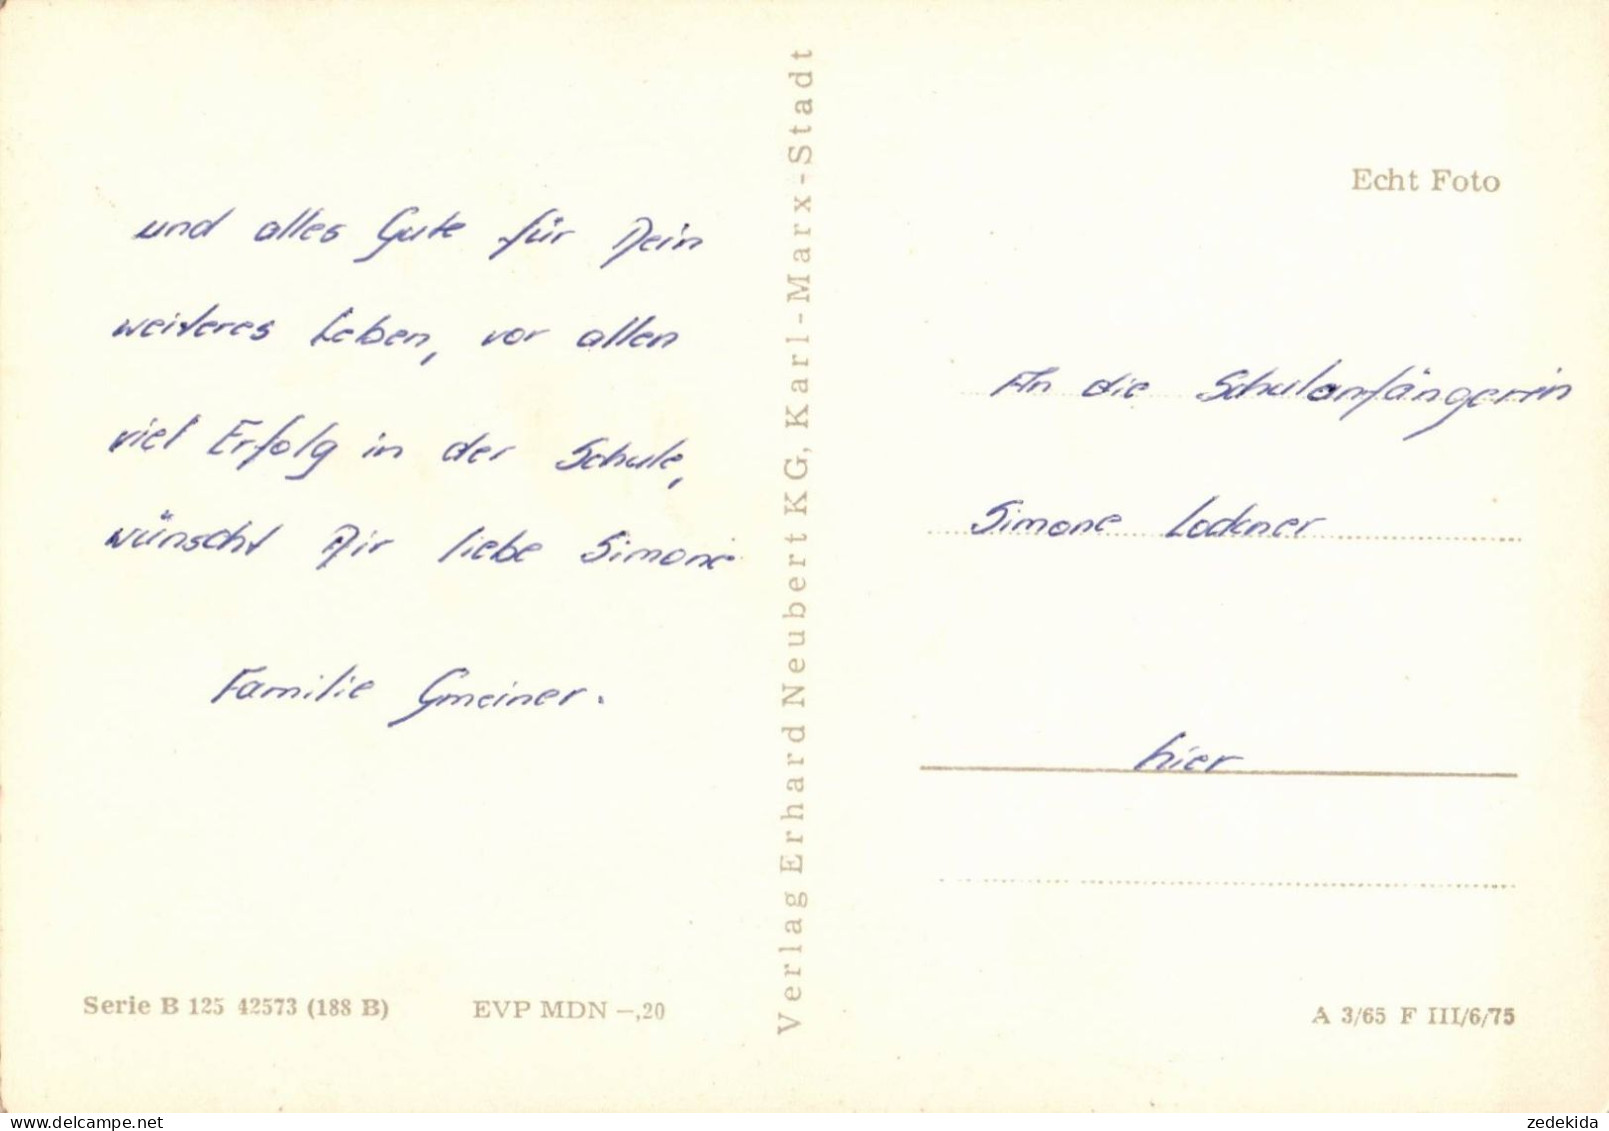 und alles Gute für Dein
weiteres Leben, vor allen
viel Erfolg in der Schule,
wünscht Dir liebe Simone
Familie Gmeiner.
Serie B 125 42573 (188 B)
EVP MDN –,20
Verlag Erhard Neubert KG, Karl-Marx-Stadt
Echt Foto
An die Schulanfängerin
Simone Lockner
hier
A 3/65 F III/6/75
delcampe.net
zedekida